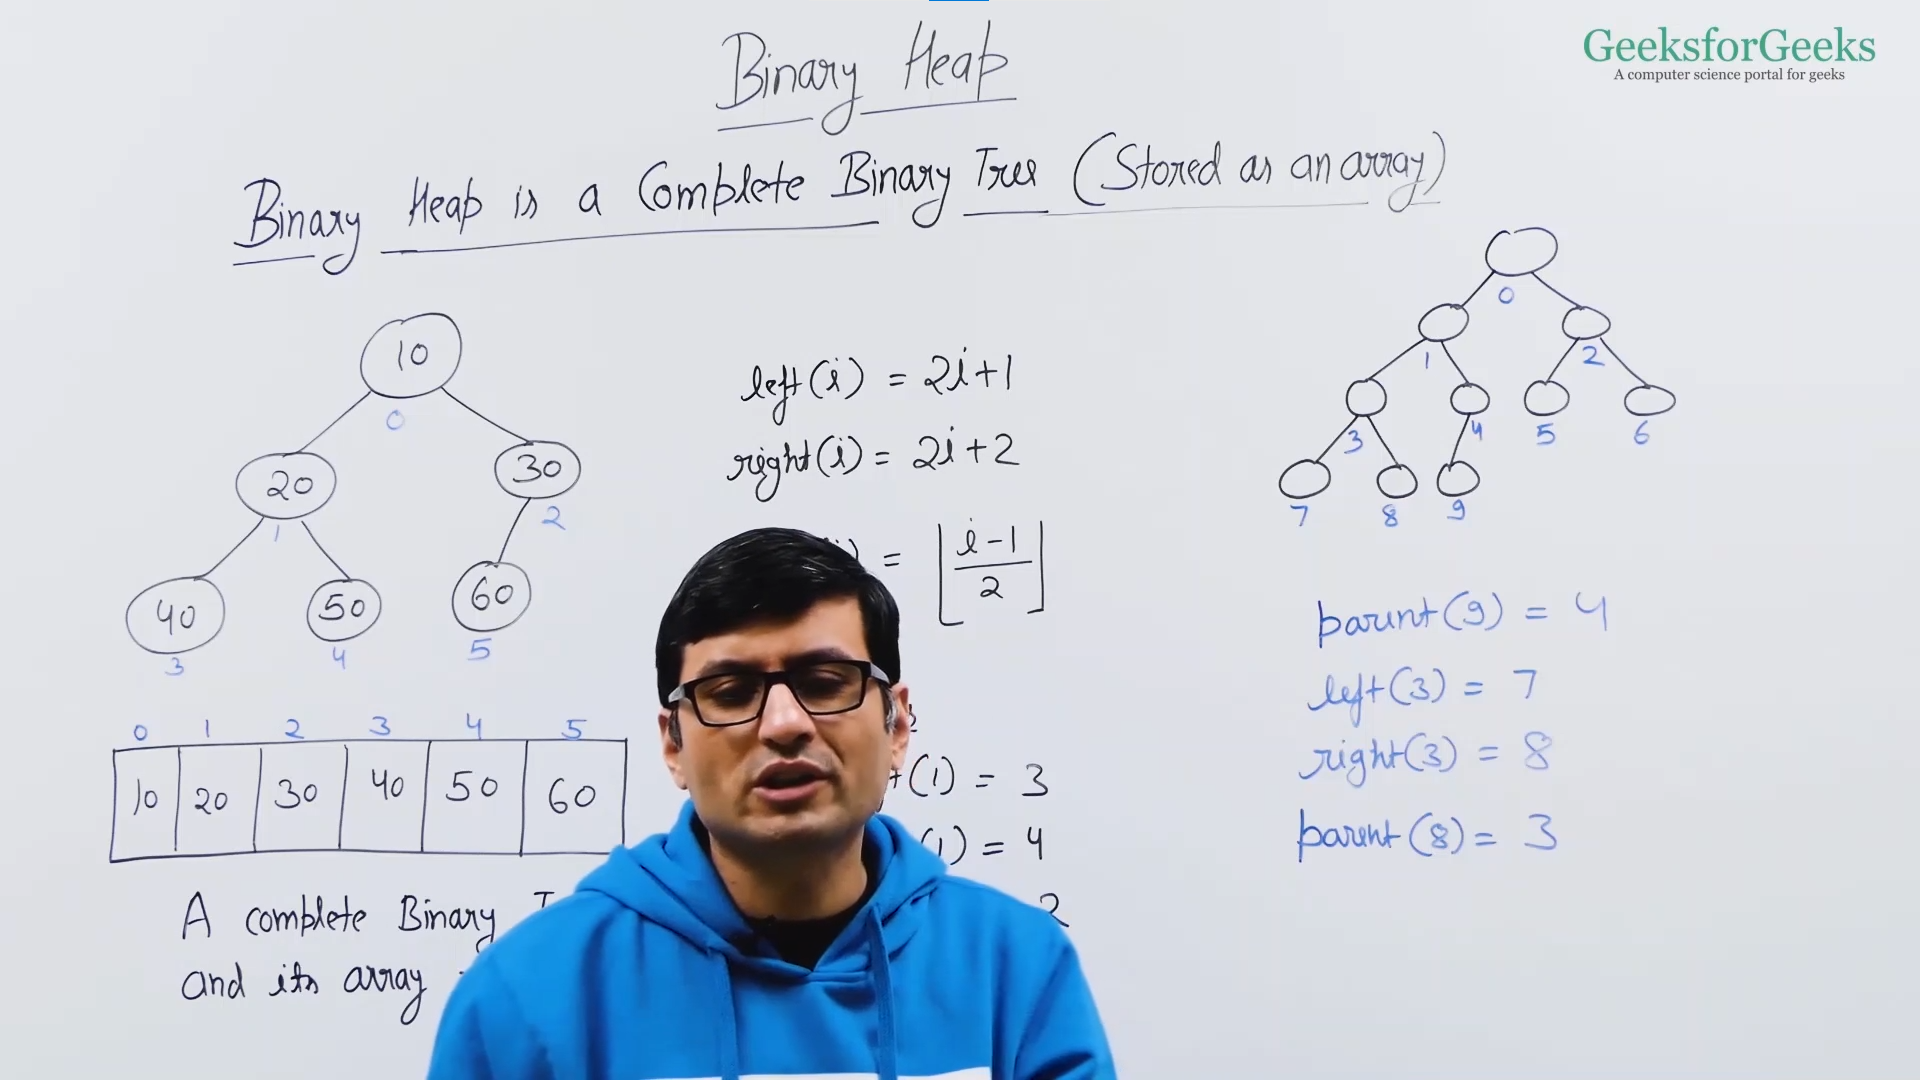 GeeksforGeeks
A computer science portal for geeks
Binary Heap
Binary Heap is a Complete Binary Tree (Stored as an array)
10
0
20
30
1
2
40
50
60
3
4
5
0 1 2 3 4 5
10 20 30 40 50 60
A complete Binary
and its array
left(i) = 2i+1
right(i) = 2i+2
= ⌊(i-1)/2⌋
(1) = 3
(1) = 4
2
0
1
2
3
4
5
6
7
8
9
parent(9) = 4
left(3) = 7
right(3) = 8
parent(8) = 3